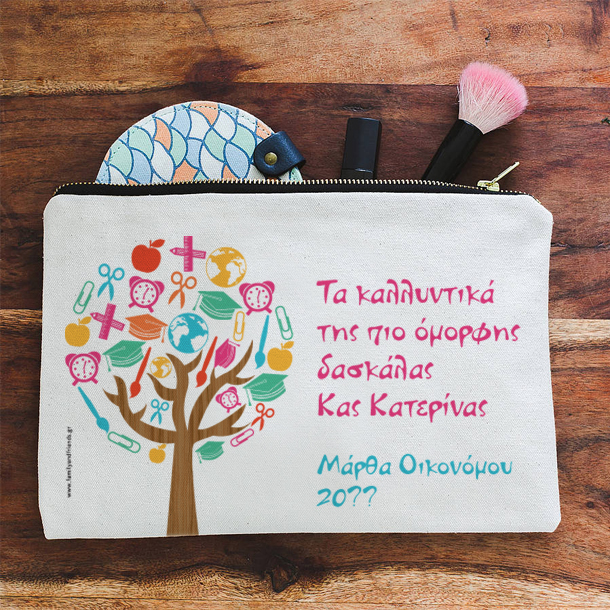 Τα καλλυντικά
της πιο όμορφης
δασκάλας
Κας Κατερίνας
Μάρθα Οικονόμου
20??
www.familyandfriends.gr